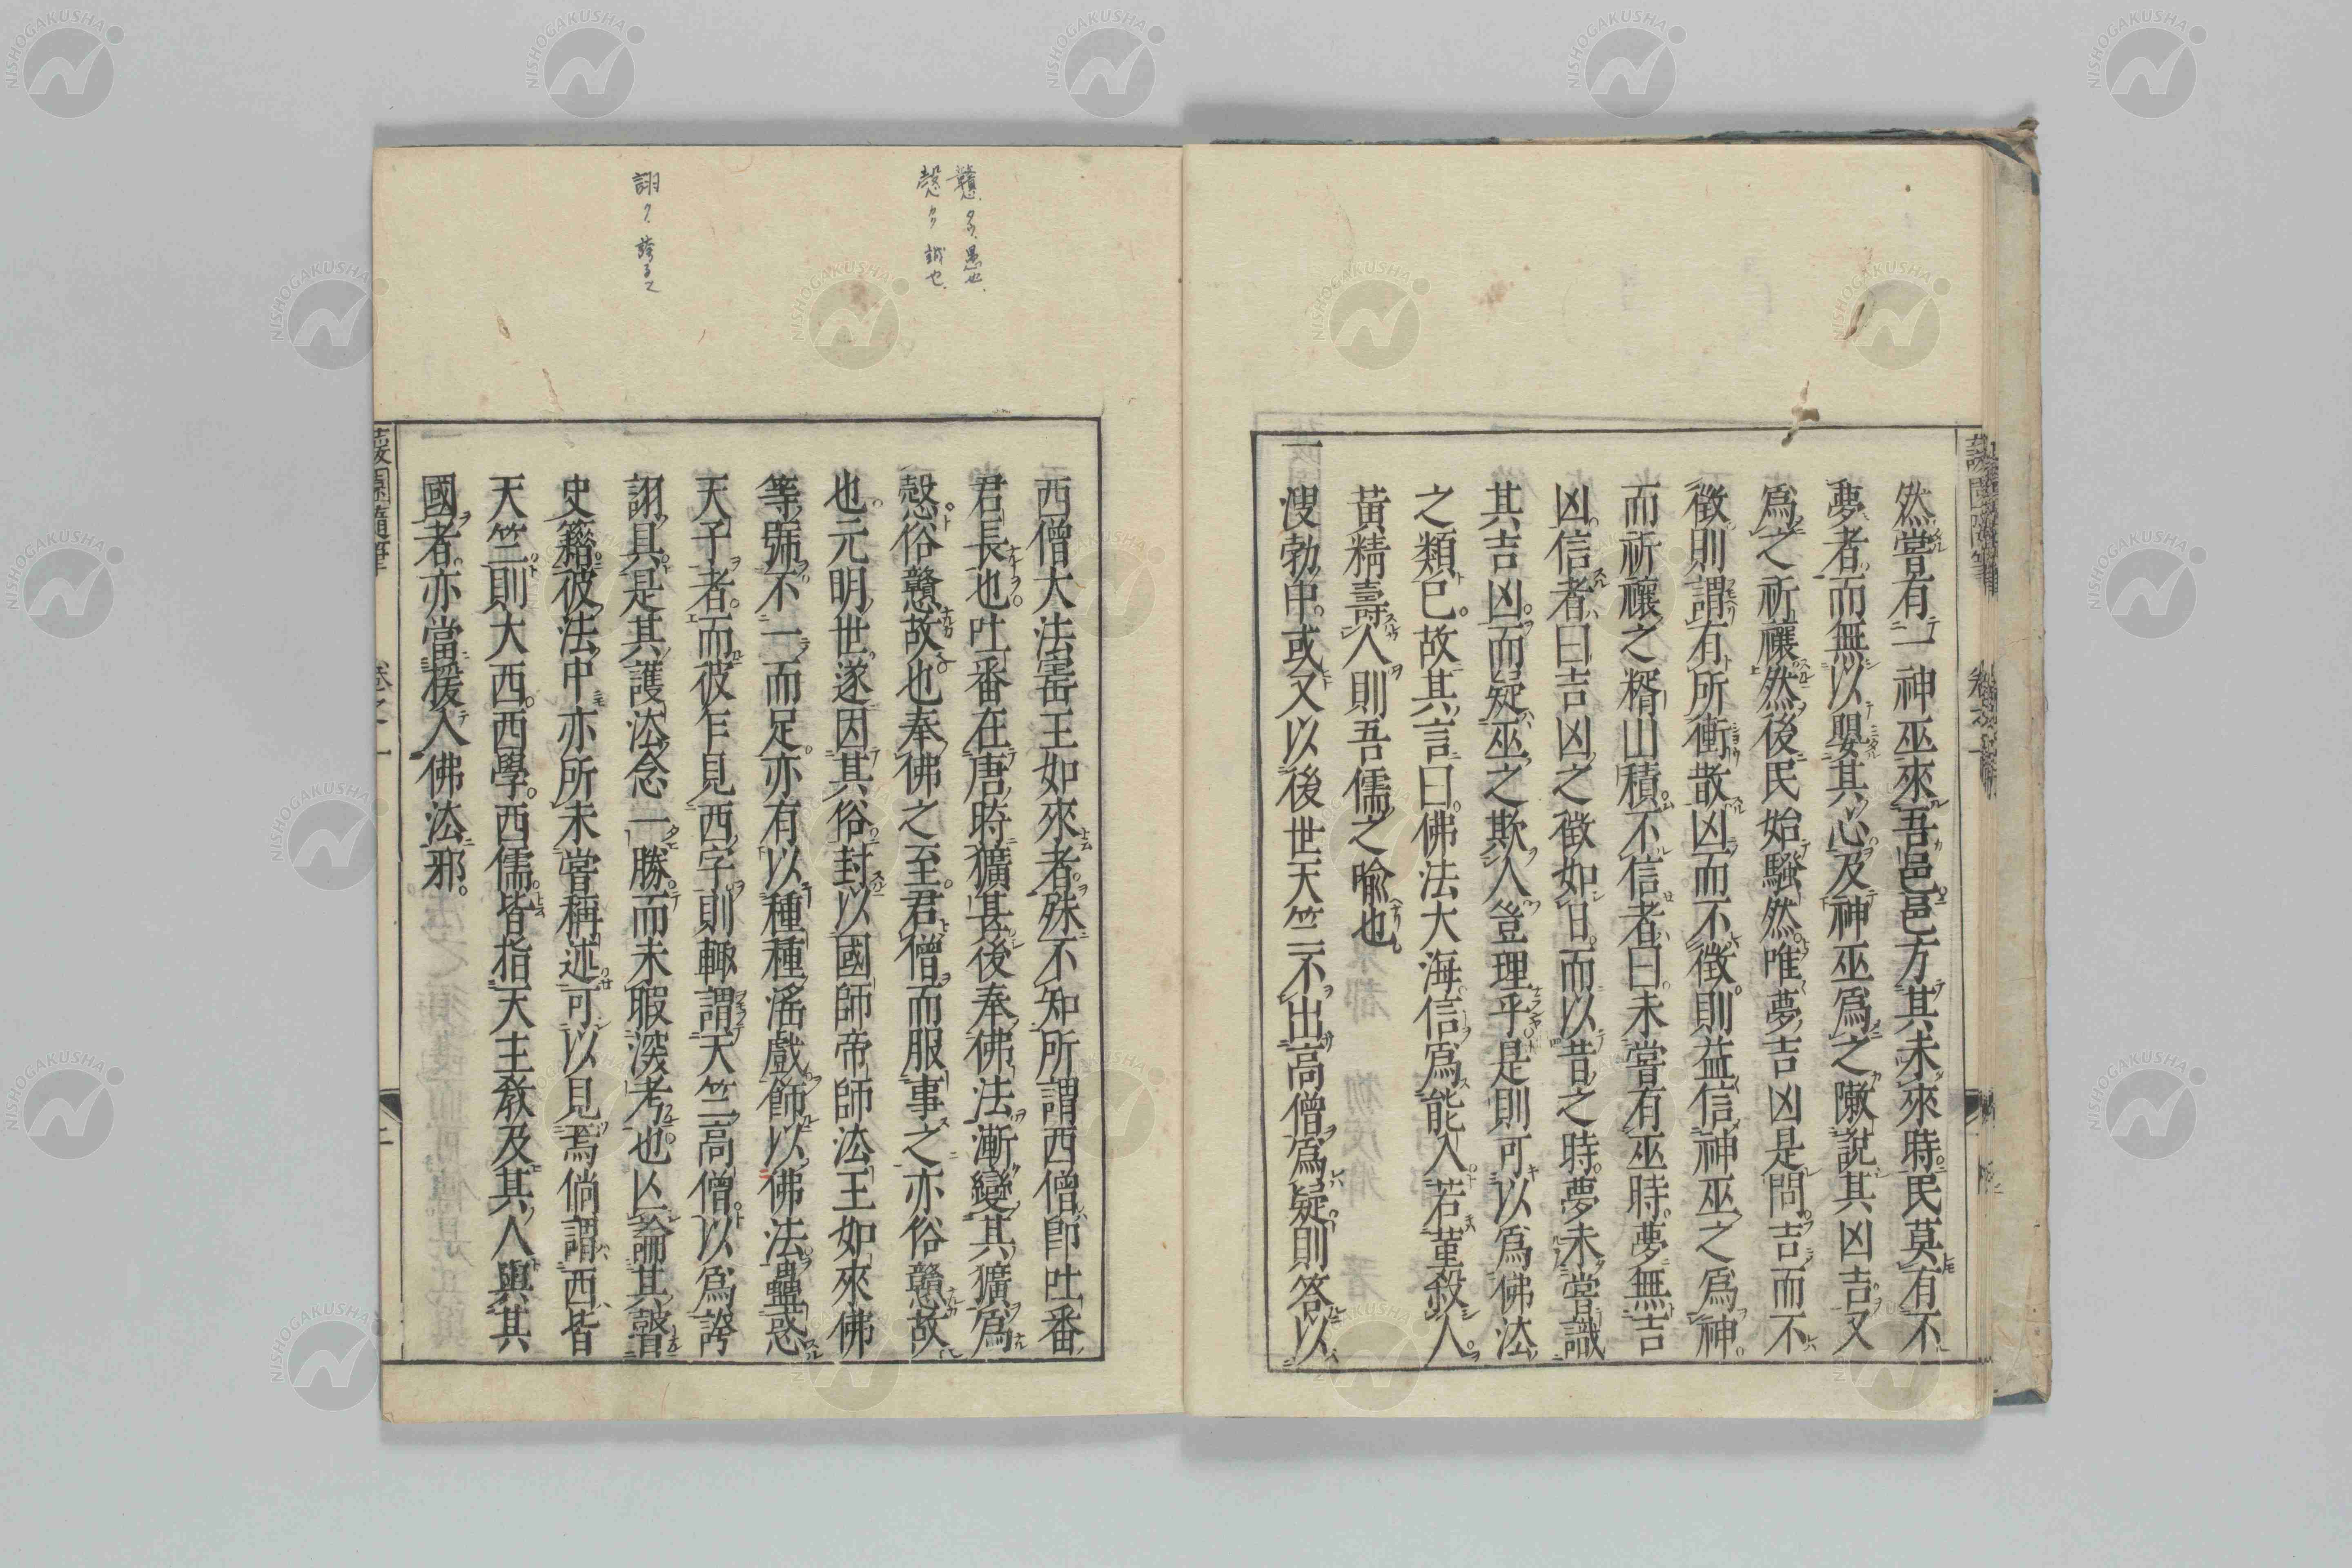 然嘗有一神巫來吾邑邑方其未來時民莫有不
夢者而無以嬰其心及神巫爲之瞰説其凶吉又
爲之祈禳然後民始騷然唯夢吉凶是問吉而不
徴則謂有所衝散凶而不徴則益信神巫之爲神
而祈禳之糈山積不信者曰未嘗有巫時夢無吉
凶信者曰吉凶之徴如日而以昔之時夢未嘗識
其吉凶而疑巫之欺人豈理乎是則可以爲佛法
之類已故其言曰佛法大海信爲能入若菫殺人
黃精壽人則吾儒之喩也
溲勃中或又以後世天竺不出高僧爲疑則答以
西僧大法寶王如來者殊不知所謂西僧卽吐番
君長也吐番在唐時獷甚後奉佛法漸變其獷爲
愨俗戇故也奉佛之至君僧而服事之亦俗戇故
也元明世遂因其俗封以國師帝師法王如來佛
等號不一而足亦有以種種滛戲餙以佛法蠱惑
天子者而彼乍見西字則輙謂天竺高僧以爲誇
詡具是其護法念一勝而未暇深考也亾論其瞀
史籍彼法中亦所未嘗稱述可以見焉倘謂西皆
天竺則大西西學西儒皆指天主教及其人與其
國者亦當援入佛法邪
戇 愚也
愨 誠也
詡ク 誇ル
蘐園隨筆
卷之一
二
NISHOGAKUSHA